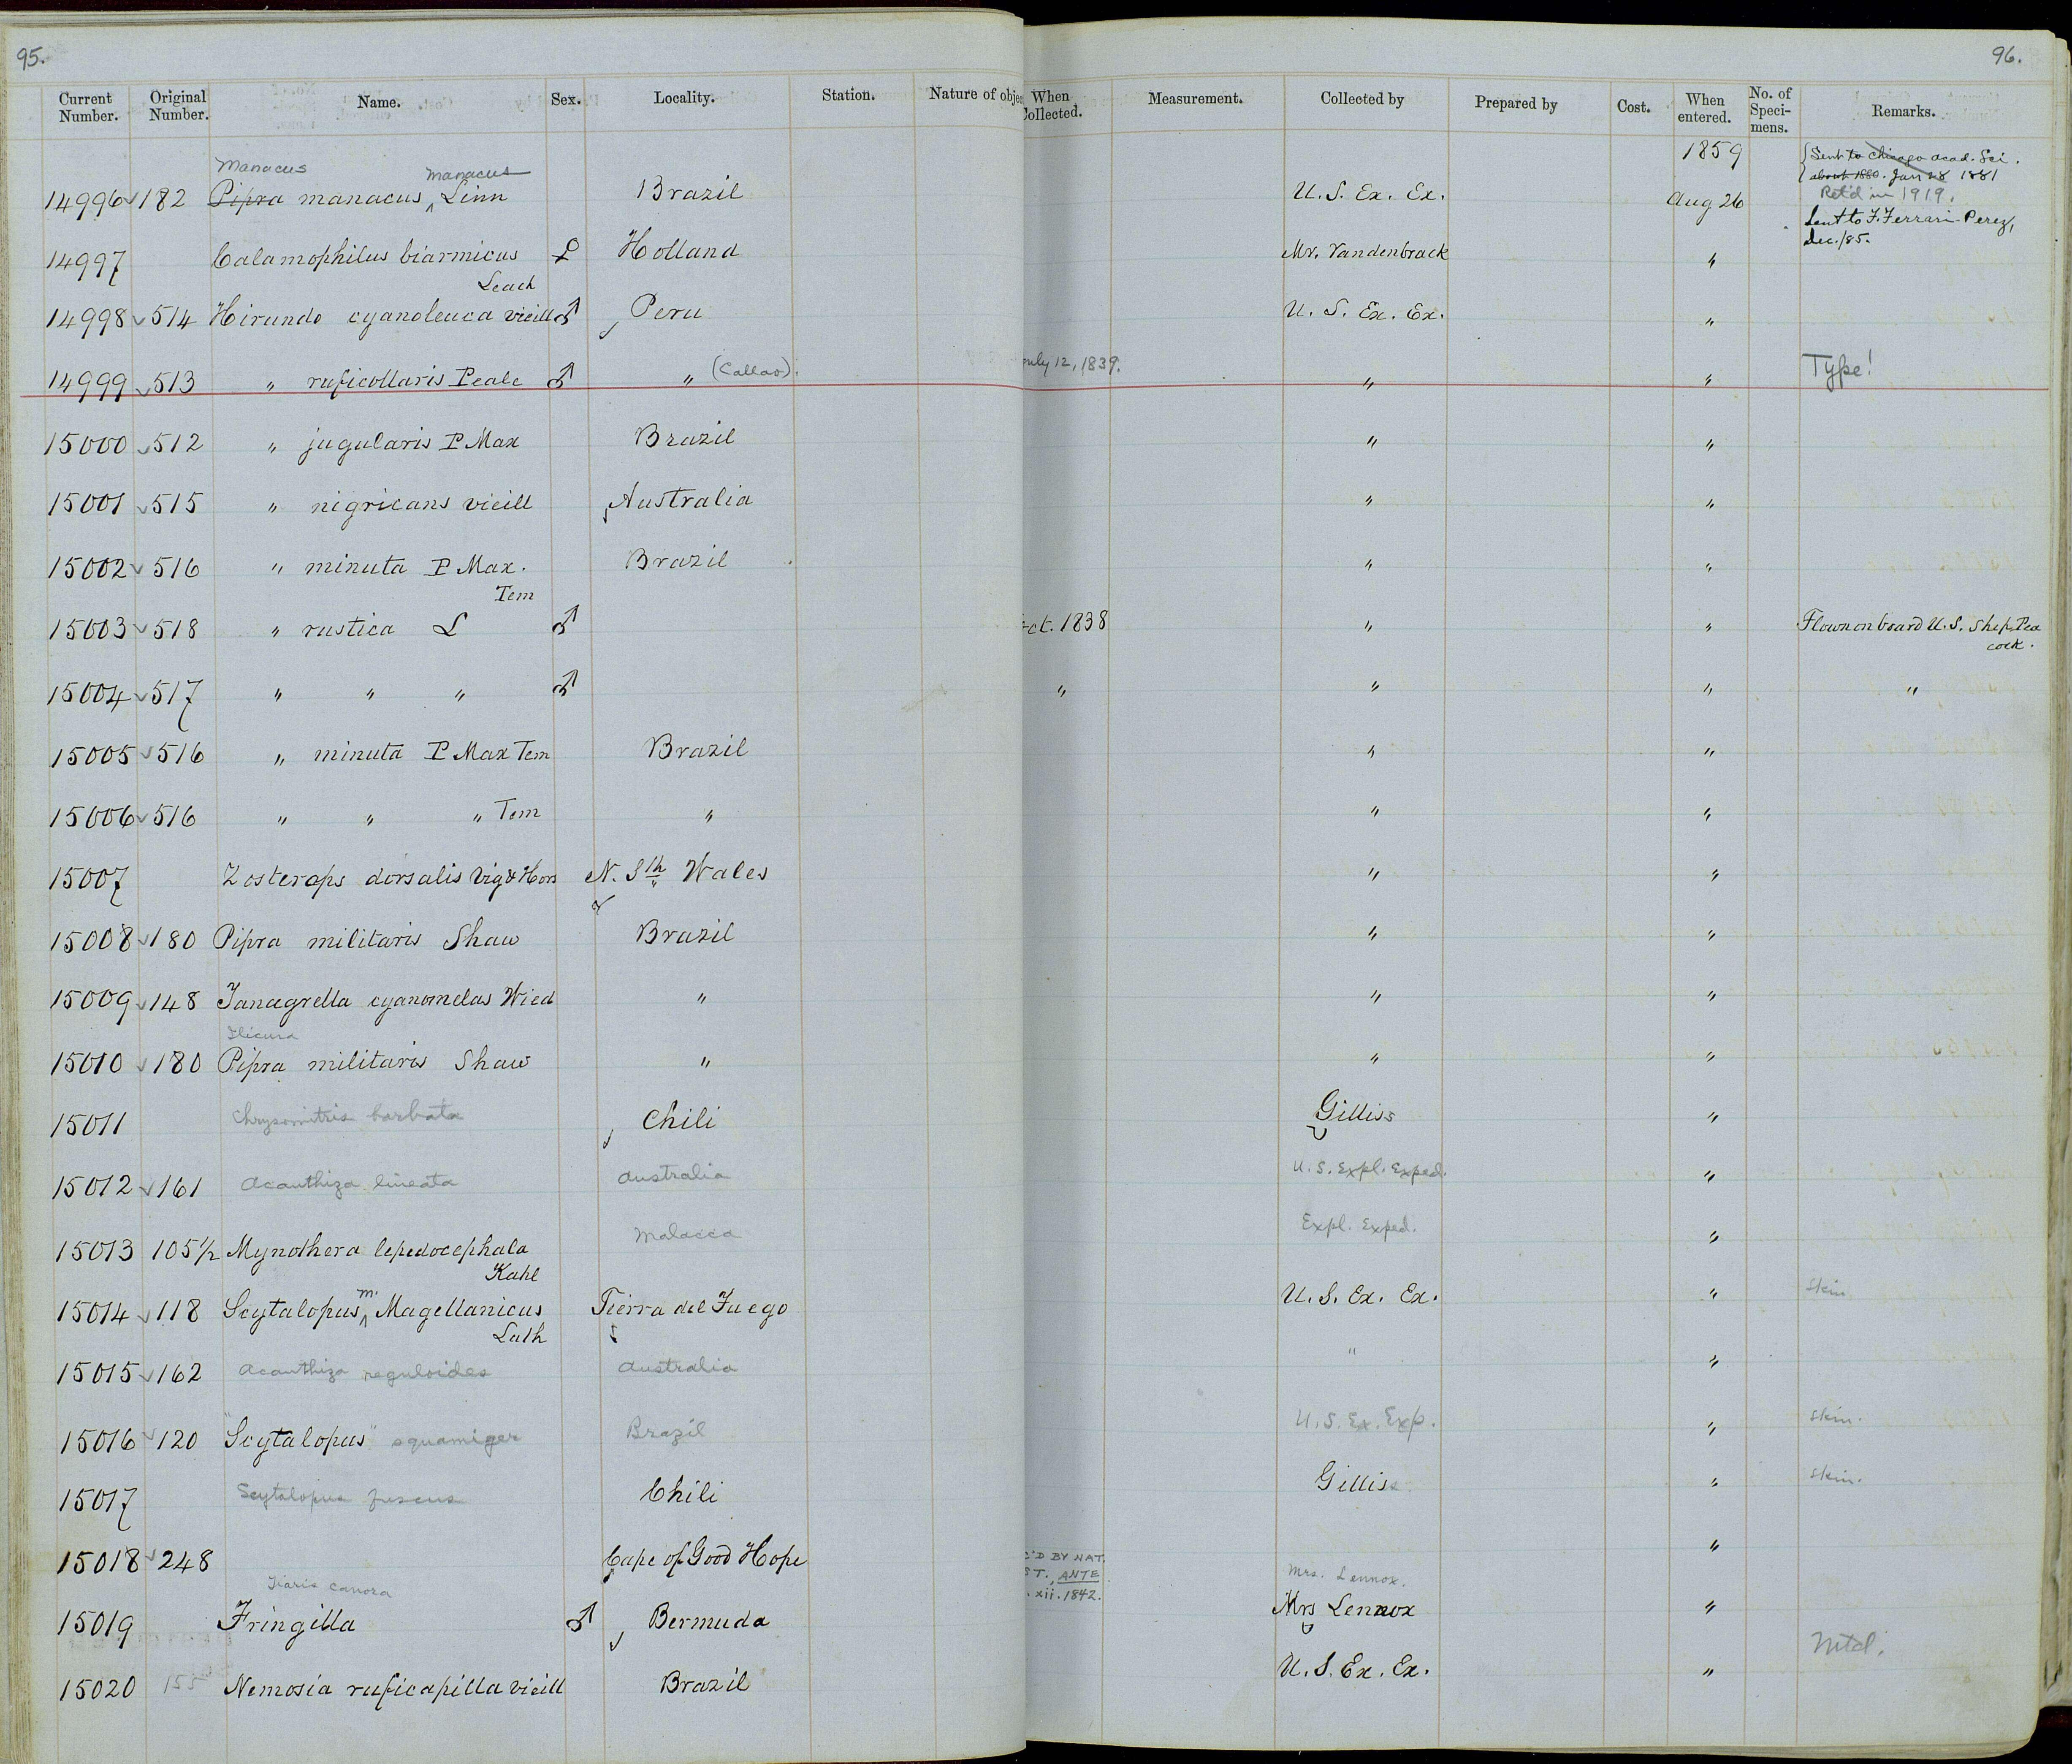 95.
96.
Current Number. Original Number. Name. Sex. Locality. Station. Nature of objec When Collected. Measurement. Collected by Prepared by Cost. When entered. No. of Speci-mens. Remarks.
Manacus manacus 1859 Sent to Chicago Acad. Sci.
about 1880. Jan 28 1881
14996 182 Pipra manacus Linn Brazil U. S. Ex. Ex. Aug 26 Ret'd in 1919.
Sent to F. Ferrari-Perez, Dec./85.
14997 Calamophilus biarmicus Leach ♀ Holland Mr. Vandenbrack "
14998 514 Hirundo cyanoleuca Vieill ♂ Peru U. S. Ex. Ex. "
14999 513 " ruficollaris Peale ♂ " (Callao). uly 12, 1839. " " Type!
15000 512 " jugularis P Max Brazil " "
15001 515 " nigricans vieill Australia " "
15002 516 " minuta P Max. Tem Brazil " "
15003 518 " rustica L ♂ ct. 1838 " " Flown on board U. S. Ship Pea
cock.
15004 517 " " " ♂ " " " "
15005 516 " minuta P Max Tem Brazil " "
15006 516 " " " Tem " " "
15007 Zosterops dorsalis Vig & Hors N. Sth Wales " "
15008 180 Pipra militaris Shaw Brazil " "
15009 148 Tanagrella cyanomelas Wied " " "
Ilicura
15010 180 Pipra militaris Shaw " " "
15011 Chrysomitris barbata Chili Gilliss "
15012 161 Acanthiza lineata Australia U. S. Expl. Exped. "
15013 105½ Myiothera lepedocephala Kuhl Malacca Expl. Exped. "
15014 118 Scytalopus m. Magellanicus Lath Tierra del Fuego U. S. Ex. Ex. " Skin
15015 162 Acanthiza reguloides Australia " "
15016 120 "Scytalopus" squamiger Brazil U. S. Ex. Exp. " Skin.
15017 Scytalopus fuscus Chili Gilliss " Skin.
15018 248 Cape of Good Hope "
'D BY NAT.
ST., ANTE
. xii. 1842.
Tiaris canora Mrs. Lennox.
15019 Fringilla ♂ Bermuda Mrs Lennox "
15020 155 Nemosia ruficapilla vieill Brazil U. S. Ex. Ex. " Mtd.